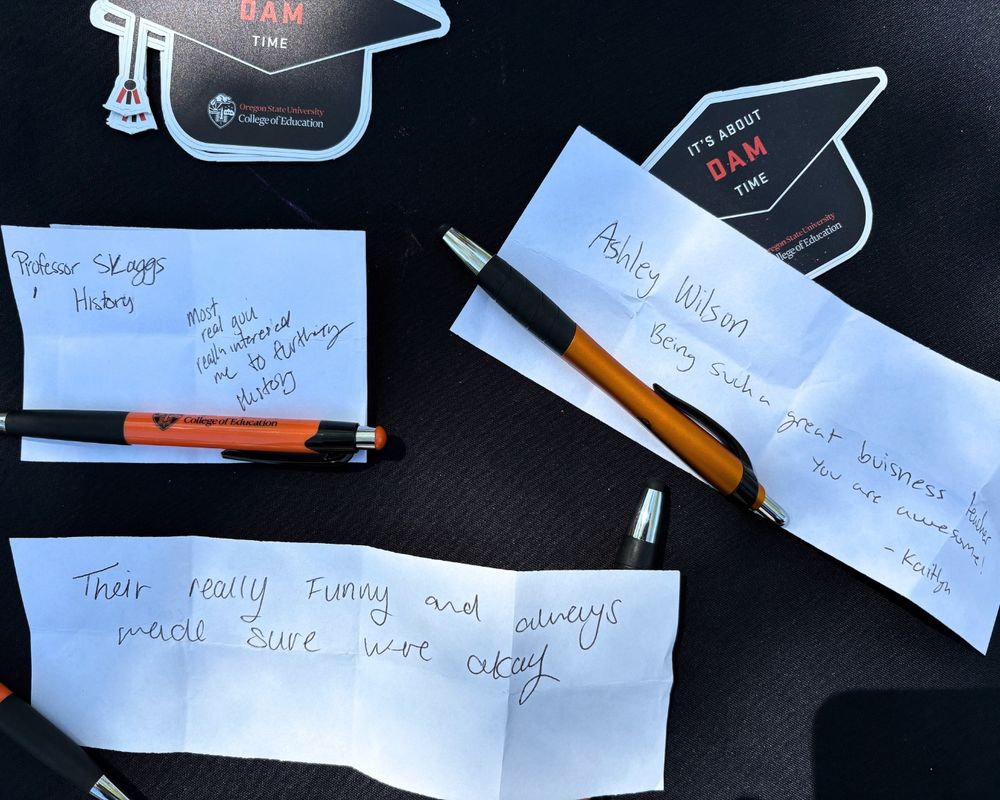 DAM
TIME
Oregon State University
College of Education
IT'S ABOUT
DAM
TIME
Oregon State University
College of Education
Professor Skaggs
History
Most
real
really interested
me to furthury
History
College of Education
Ashley Wilson
Being such a great buisness teacher
You are awesome!
- Kaitlyn
Their really Funny and always
made sure we're okay